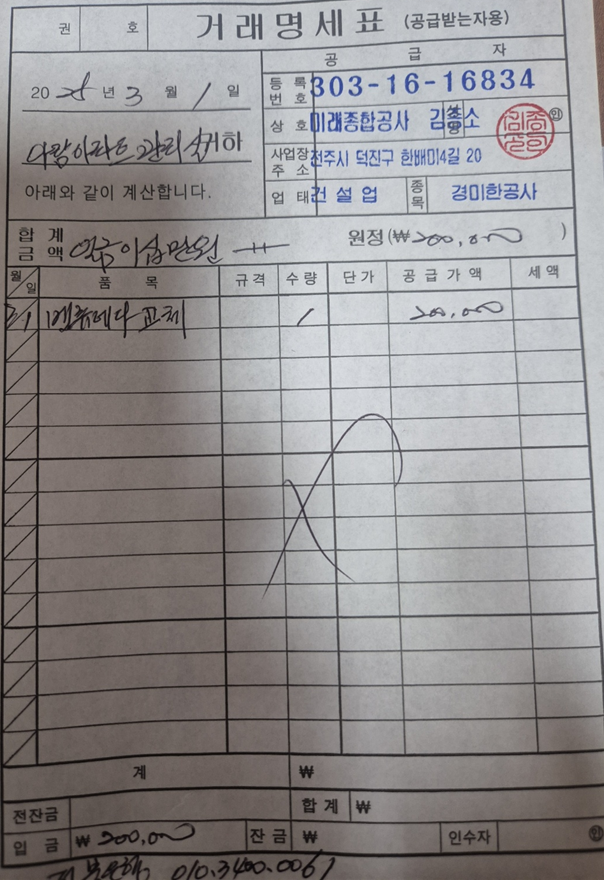 권 호 거래명세표 (공급받는자용)
공 급 자
2025년 3월 1일
등록번호 303-16-16834
상호 미래종합공사 김 소 ㊞
사랑아파트 관리 귀하
사업장주소 전주시 덕진구 한배미4길 20
아래와 같이 계산합니다.
업태 건설업 종목 경미한공사
합계금액 일금이십만원 원정(₩200,000)
월일 품목 규격 수량 단가 공급가액 세액
3/1 교체 1 200,000
계 ₩
전잔금 합계 ₩
입금 ₩200,000 잔금 ₩ 인수자 ㊞
010.3400.0061